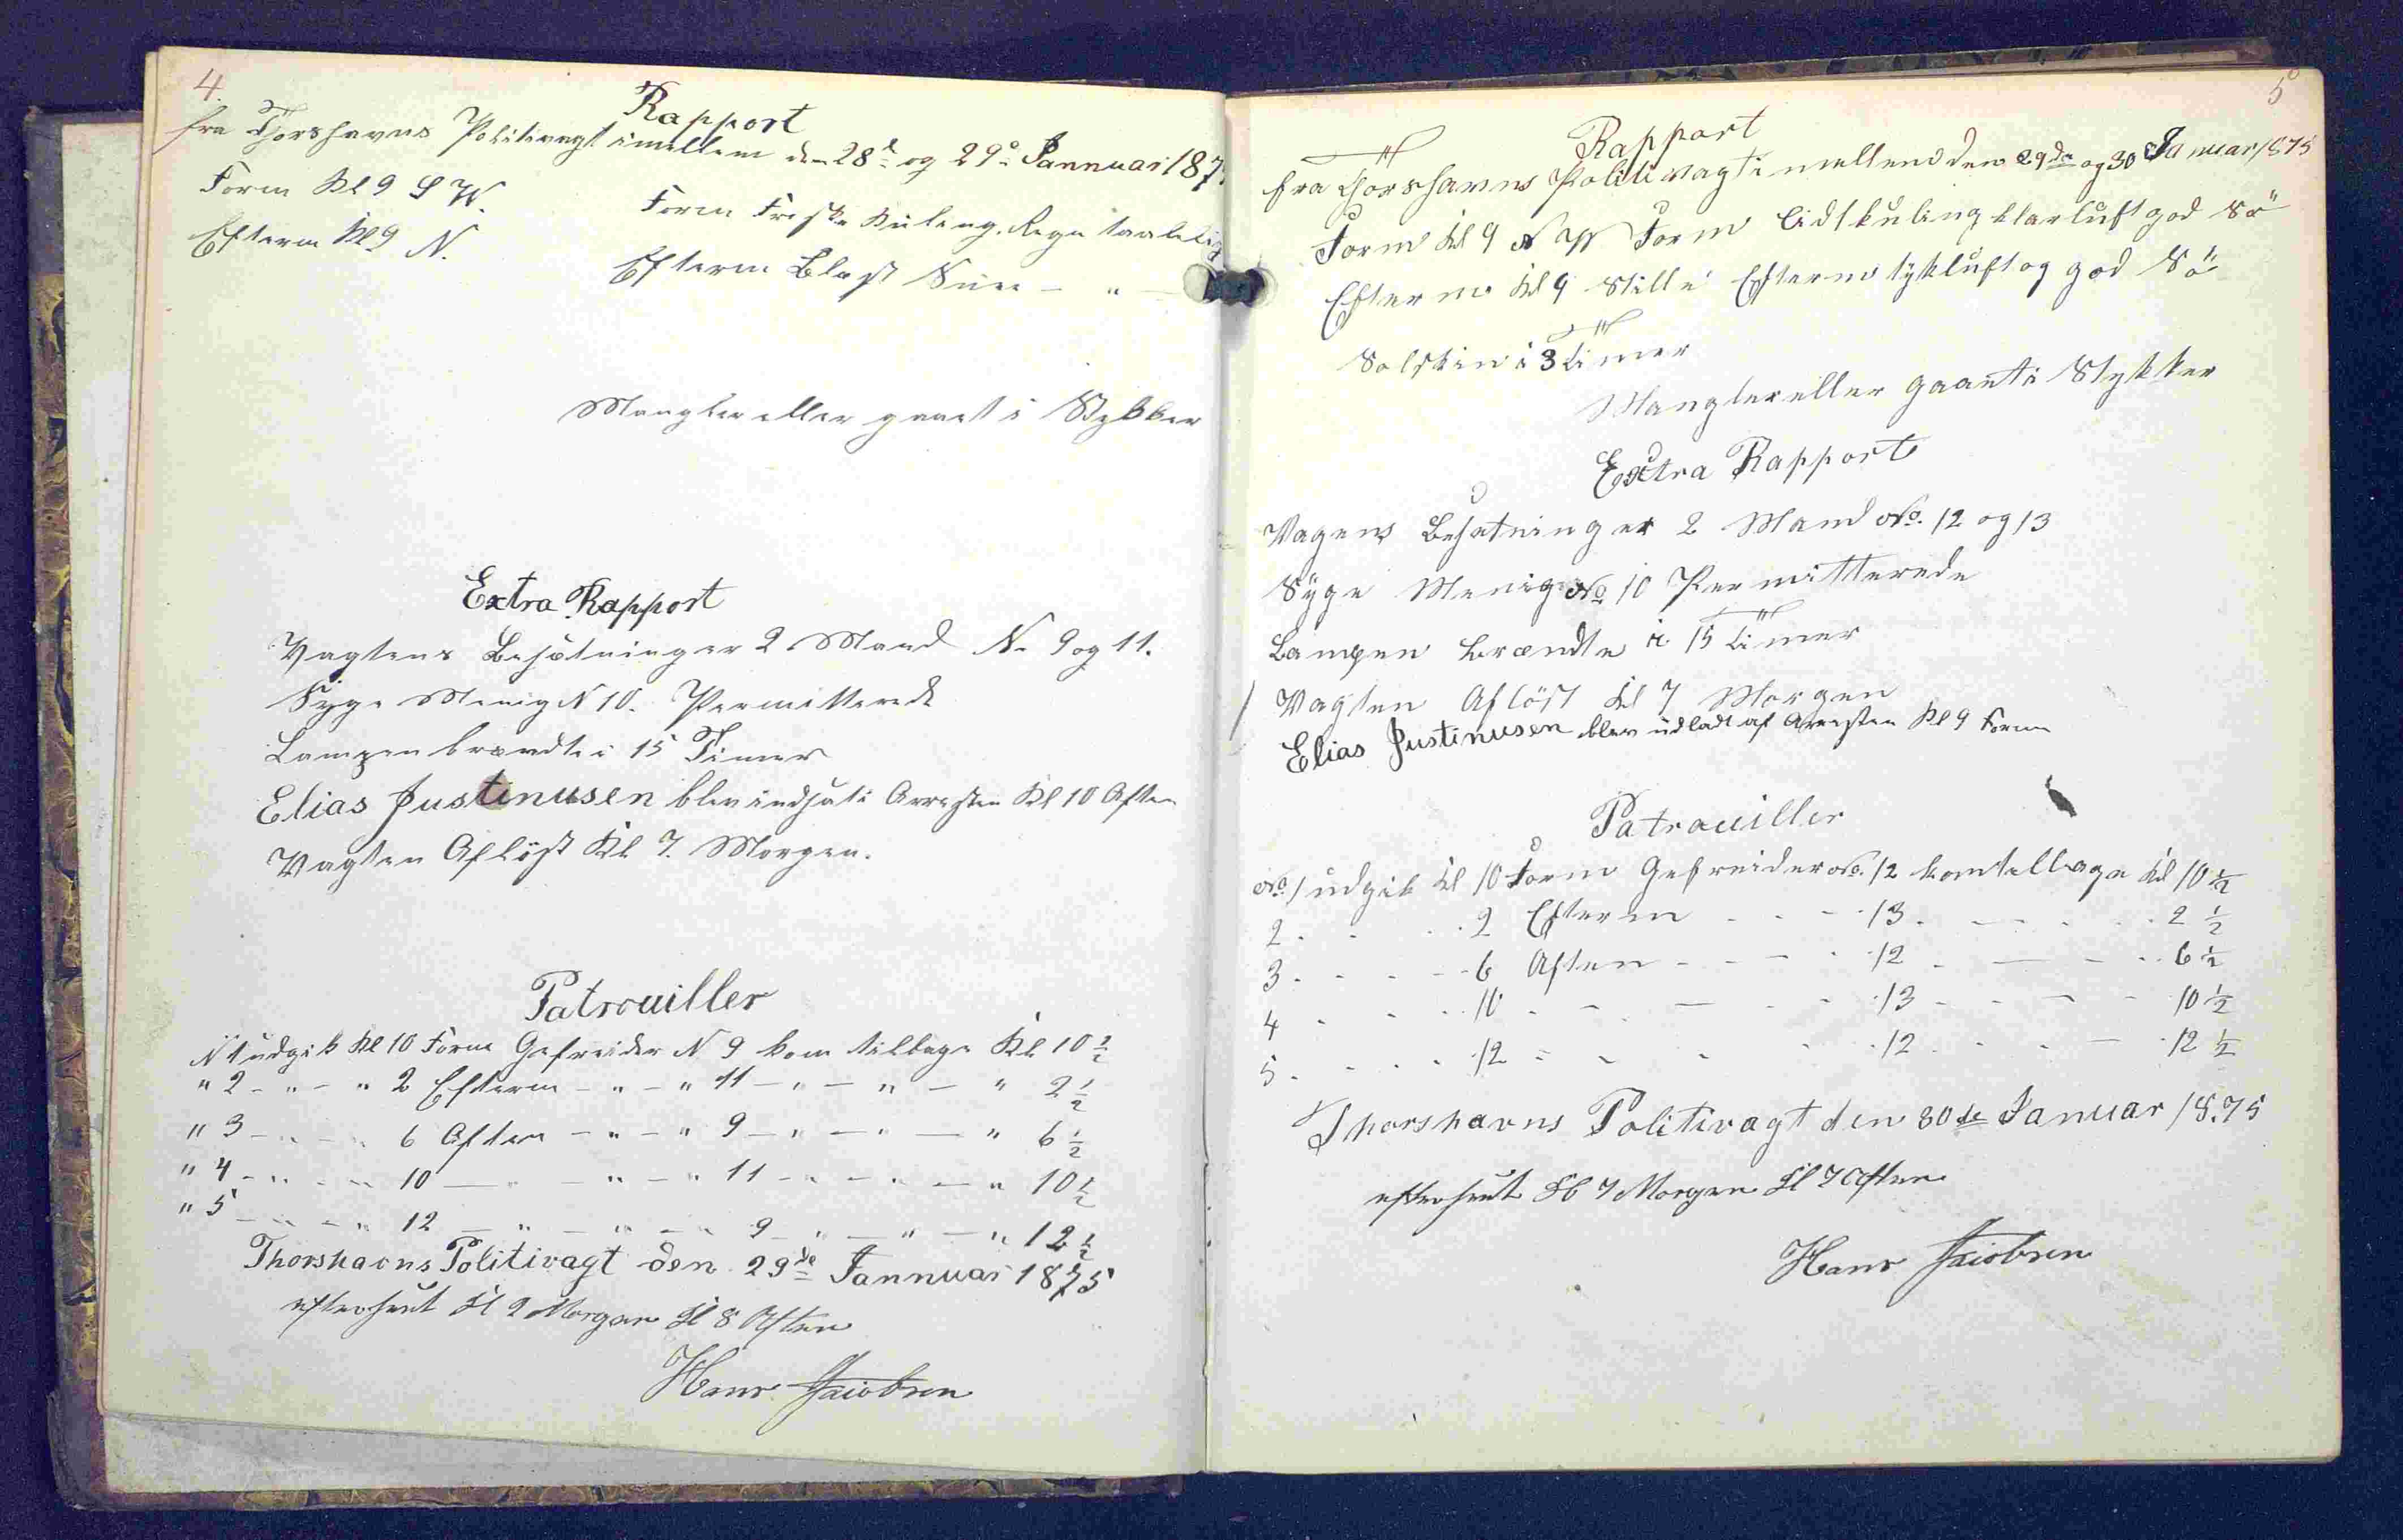 4.
Rapport
fra Thorshavns Politivagt imellem den 28de og 29de Jannuar 187
Form Kl 9 S W. Form Friske Kuling. Regn taalelig
Efterm Kl 9 N. Efterm Blæst Snee - " -
Mangler eller gaaet i Stykker
Extra Rapport
Vagtens Besætning er 2 Mand No 9 og 11.
Syge Menig N 10. Permitterede
Lampen brændte i 15 Timer
Elias Justinusen blev indsat i Arresten Kl 10 Aften
Vagten Afløst Kl 7. Morgen.
Patrouiller
N 1 udgik Kl 10 Form Gefreider N 9 kom tilbage Kl 10 ½
" 2 - " - " 2 Efterm - " - " 11 - " - " - " 2 ½
" 3 - " - " 6 Aften - " - " 9 - " - " - " 6 ½
" 4 - " - " 10 - " - " - " 11 - " - " - " 10 ½
" 5 - " - " 12 - " - " - " 9 - " - " - " 12 ½
Thorshavns Politivagt den 29de Jannuar 1875
efterseet Kl 9 Morgen Kl 8 Aften
Hans Jacobsen
5
Rapport
fra Thorshavns Politivagt imellem den 29de og 30 Januar 1875
Form Kl 9 N W Form Lidt kuling klar luft god Sö
Efterm Kl 9 Stille Efterm tyk luft og god Sö
Solskin i 3 Timer
Mangler eller gaaet i Stykker
Extra Rapport
Vagens Besatning er 2 Mand No. 12 og 13
Syge Menig No 10 Permitterede
Lampen brændte i 15 Timer
Vagten Aflöst Kl 7 Morgen
Elias Justinusen blev udladt af Arresten Kl 9 Form
Patrouiller
No. 1 udgik Kl 10 Form Gefreider No. 12 kom tilbage Kl 10 ½
2 - - - 2 Efterm - - - 13 - - - - 2 ½
3 - - - 6 Aften - - - 12 - - - - 6 ½
4 - - - 10 - - - - 13 - - - - 10 ½
5 - - - 12 - - - - 12 - - - - 12 ½
Thorshavns Politivagt den 30de Januar 1875
efterseet Kl 7 Morgen Kl 7 Aften
Hans Jacobsen